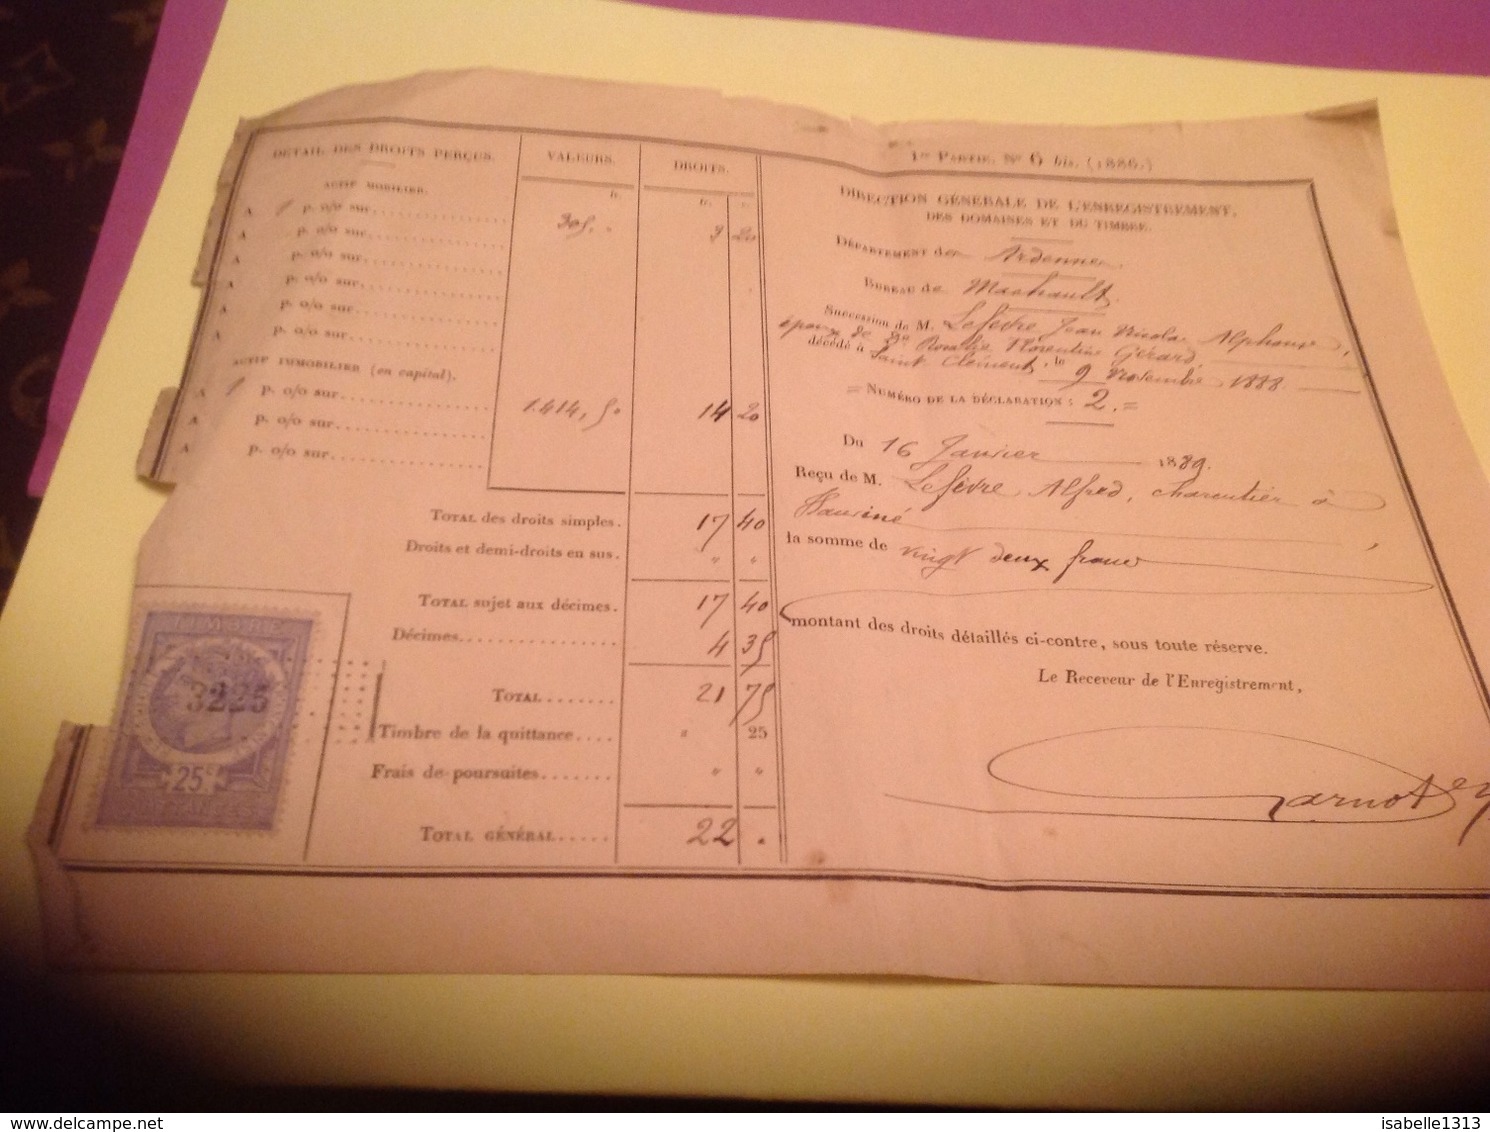 DÉTAIL DES DROITS PERÇUS. VALEURS. DROITS.
ACTIF MOBILIER. fr. fr. c.
A 1 p. o/o sur 305, " 3 20
A p. o/o sur
A p. o/o sur
A p. o/o sur
A p. o/o sur
A p. o/o sur
ACTIF IMMOBILIER (en capital).
A 1 p. o/o sur 1.414,50 14 20
A p. o/o sur
A p. o/o sur
TOTAL des droits simples. 17 40
Droits et demi-droits en sus. " "
TOTAL sujet aux décimes. 17 40
Décimes 4 35
TOTAL 21 75
Timbre de la quittance " 25
Frais de poursuites " "
TOTAL GÉNÉRAL 22 .
TIMBRE
3225
25c
1re PARTIE. No 6 bis. (1886.)
DIRECTION GÉNÉRALE DE L'ENREGISTREMENT,
DES DOMAINES ET DU TIMBRE.
DÉPARTEMENT des Ardennes.
BUREAU de Machault.
Succession de M. Lefèvre Jean Nicolas Alphonse,
époux de Rosalie Florentine Gérard,
décédé à Saint Clément, le 9 Novembre 1888.
= NUMÉRO DE LA DÉCLARATION : 2. =
Du 16 Janvier 1889.
Reçu de M. Lefèvre Alfred, charentier à
Hauviné,
la somme de vingt deux francs
montant des droits détaillés ci-contre, sous toute réserve.
Le Receveur de l'Enregistrement,
Carnot
delcampe.net
isabelle1313